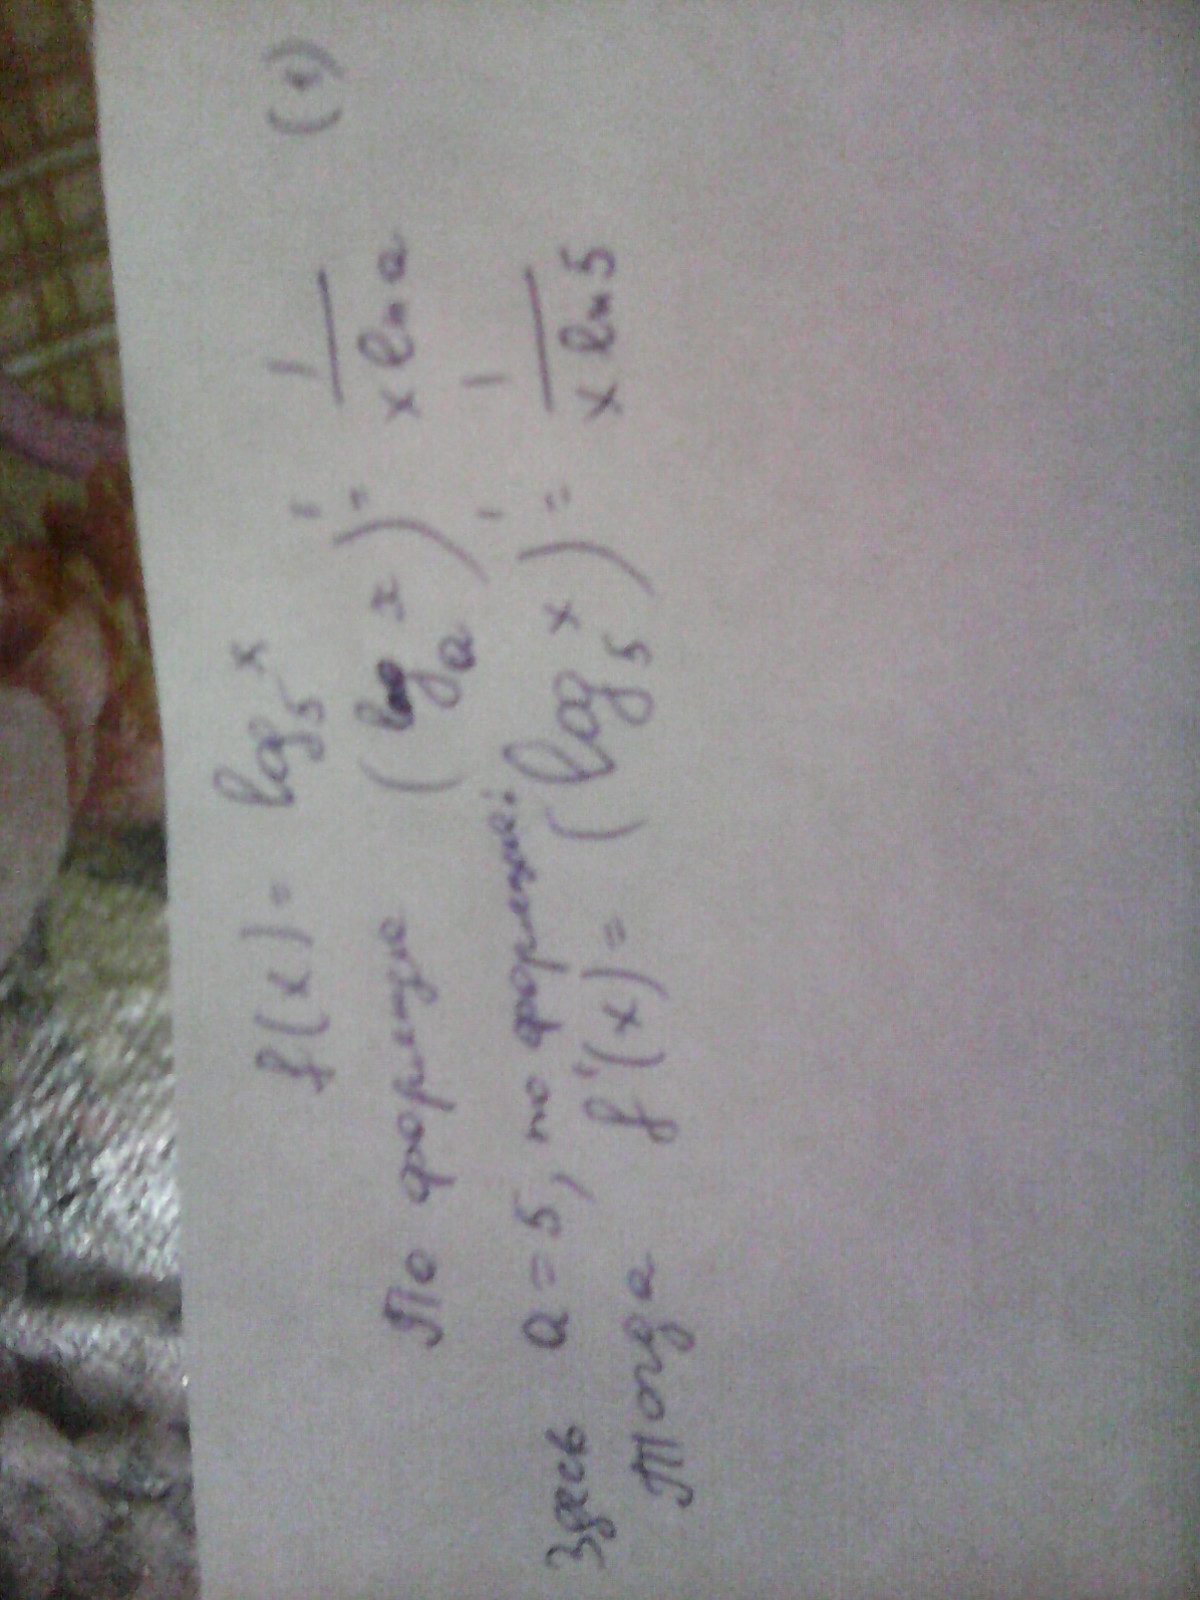 f(x) = log₅ x
По формуле (logₐ x)' = 1/(x ln a) (1)
Здесь a = 5, по формуле:
Тогда f'(x) = (log₅ x)' = 1/(x ln 5)